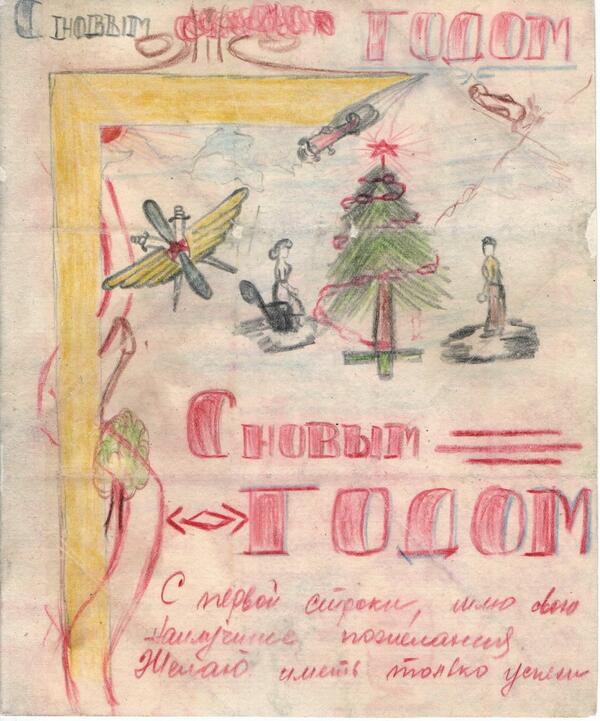 С НОВЫМ ГОДОМ
С НОВЫМ
ГОДОМ
С первой строки, шлю свои
наилучшие пожелания.
Желаю иметь только успехи